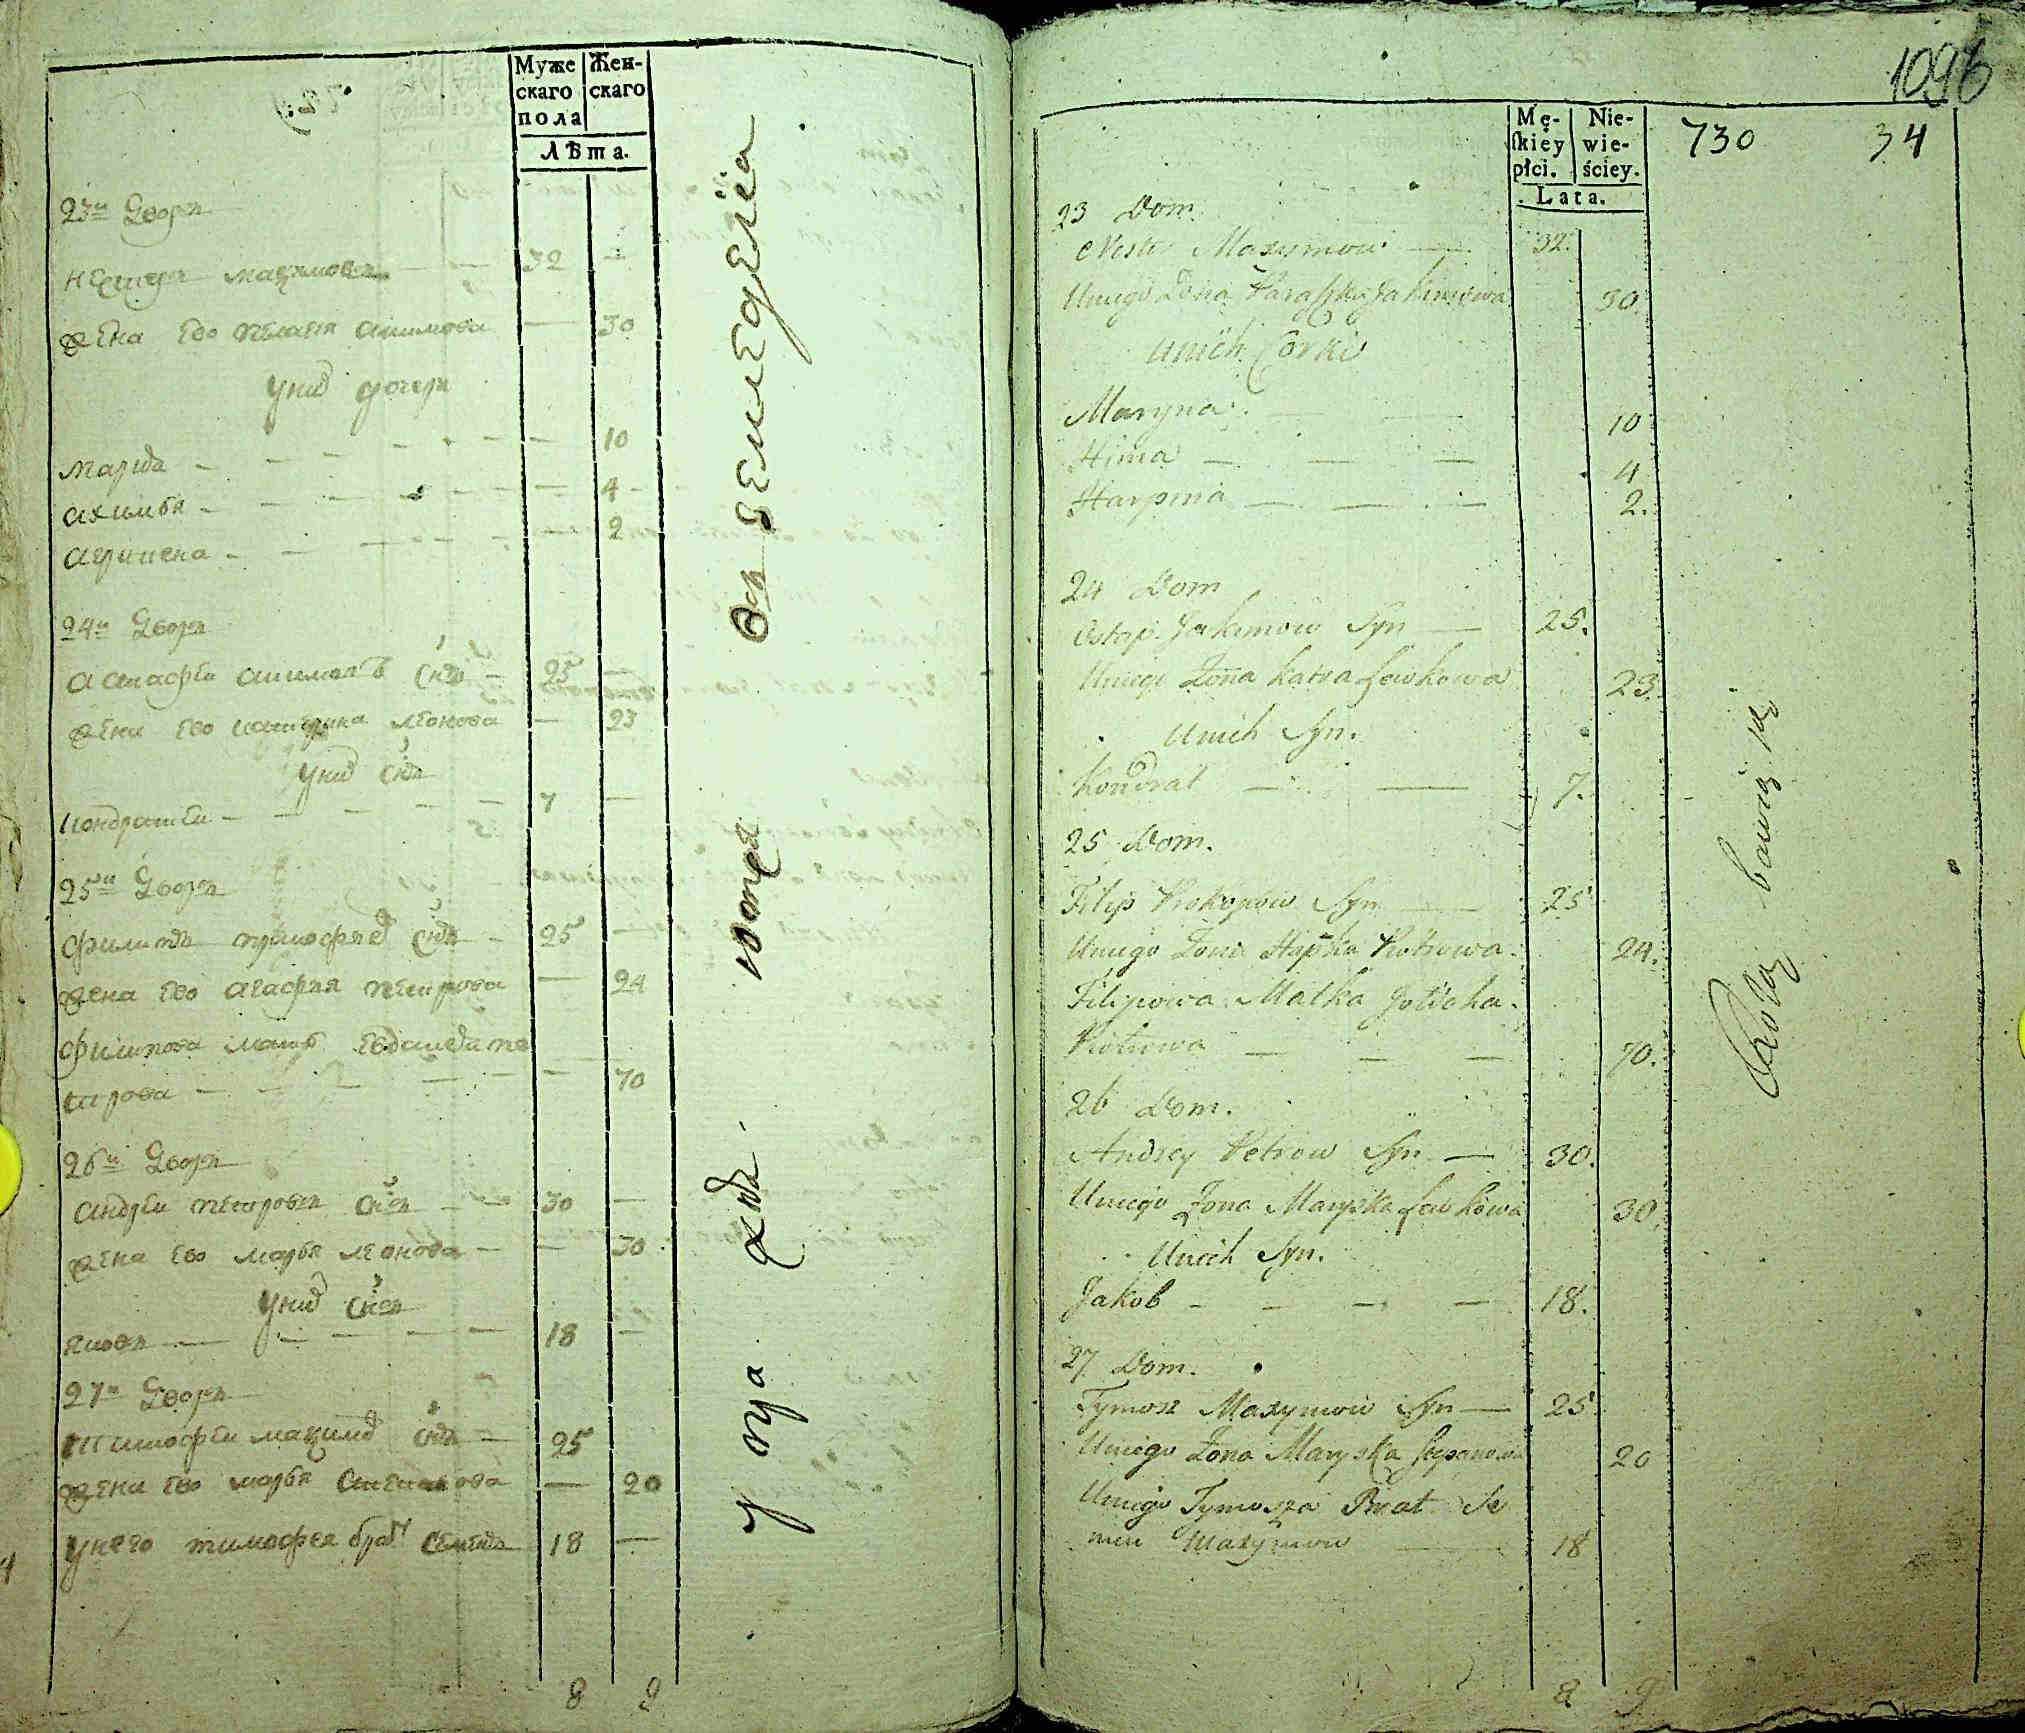 Муже
скаго
пола
Жен-
скаго
Лѣта.
23й Дворъ
Нестеръ Максимовъ — 32 —
Жена Его Пелагея Акимова — 30
У них дочери
Марья — 10
Акилина — 4
Агрипена — 2
24й Дворъ
Астафеи Акимовъ Снъ — 25 —
Жена Его Катерина Леонова — 23
У них Снъ
Кондратеи — 7 —
25й Дворъ
Филипъ Прокофьев Снъ — 25
Жена Его Агафия Петрова — 24
Филипова мать Евдокея Пе
трова — 70
26й Дворъ
Андреи Петровъ Снъ — 30 —
Жена Его Марья Леонова — 30
У них Снъ
Яковъ — 18 —
27й Дворъ
Тимофеи Максимов Снъ — 25
Жена Его Марья Степанова — 20
У него Тимофея брат Семенъ 18 —
8 9
1096
Mę-
ſkiey
płci.
Nie-
wie-
ściey.
Lata.
730 34
23 Dom.
Nester Maxymow — 32.
Uniego Żona Paraszka Jakimowa 30
Unich Corki
Maryna — 10
Hima — 4
Harpina — 2.
24 Dom
Ostap Jakimow Syn — 25.
Uniego Żona Katra Lewkowa 23
Unich Syn.
Kondrat — 7.
25 Dom.
Filip Prokopow Syn — 25
Uniego Żona Hapka Piotrowa. 24.
Filipowa Matka Jotiocha.
Piotrowa — 70.
26 Dom.
Andrey Petrow Syn — 30.
Uniego Żona Maryska Lewkowa 30
Unich Syn.
Jakob — 18.
27 Dom.
Tymosz Maxymow Syn — 25
Uniego Żona Maryska Stepanowa 20
Uniego Tymosza Brat Se
men Maxymow — 18
8 9